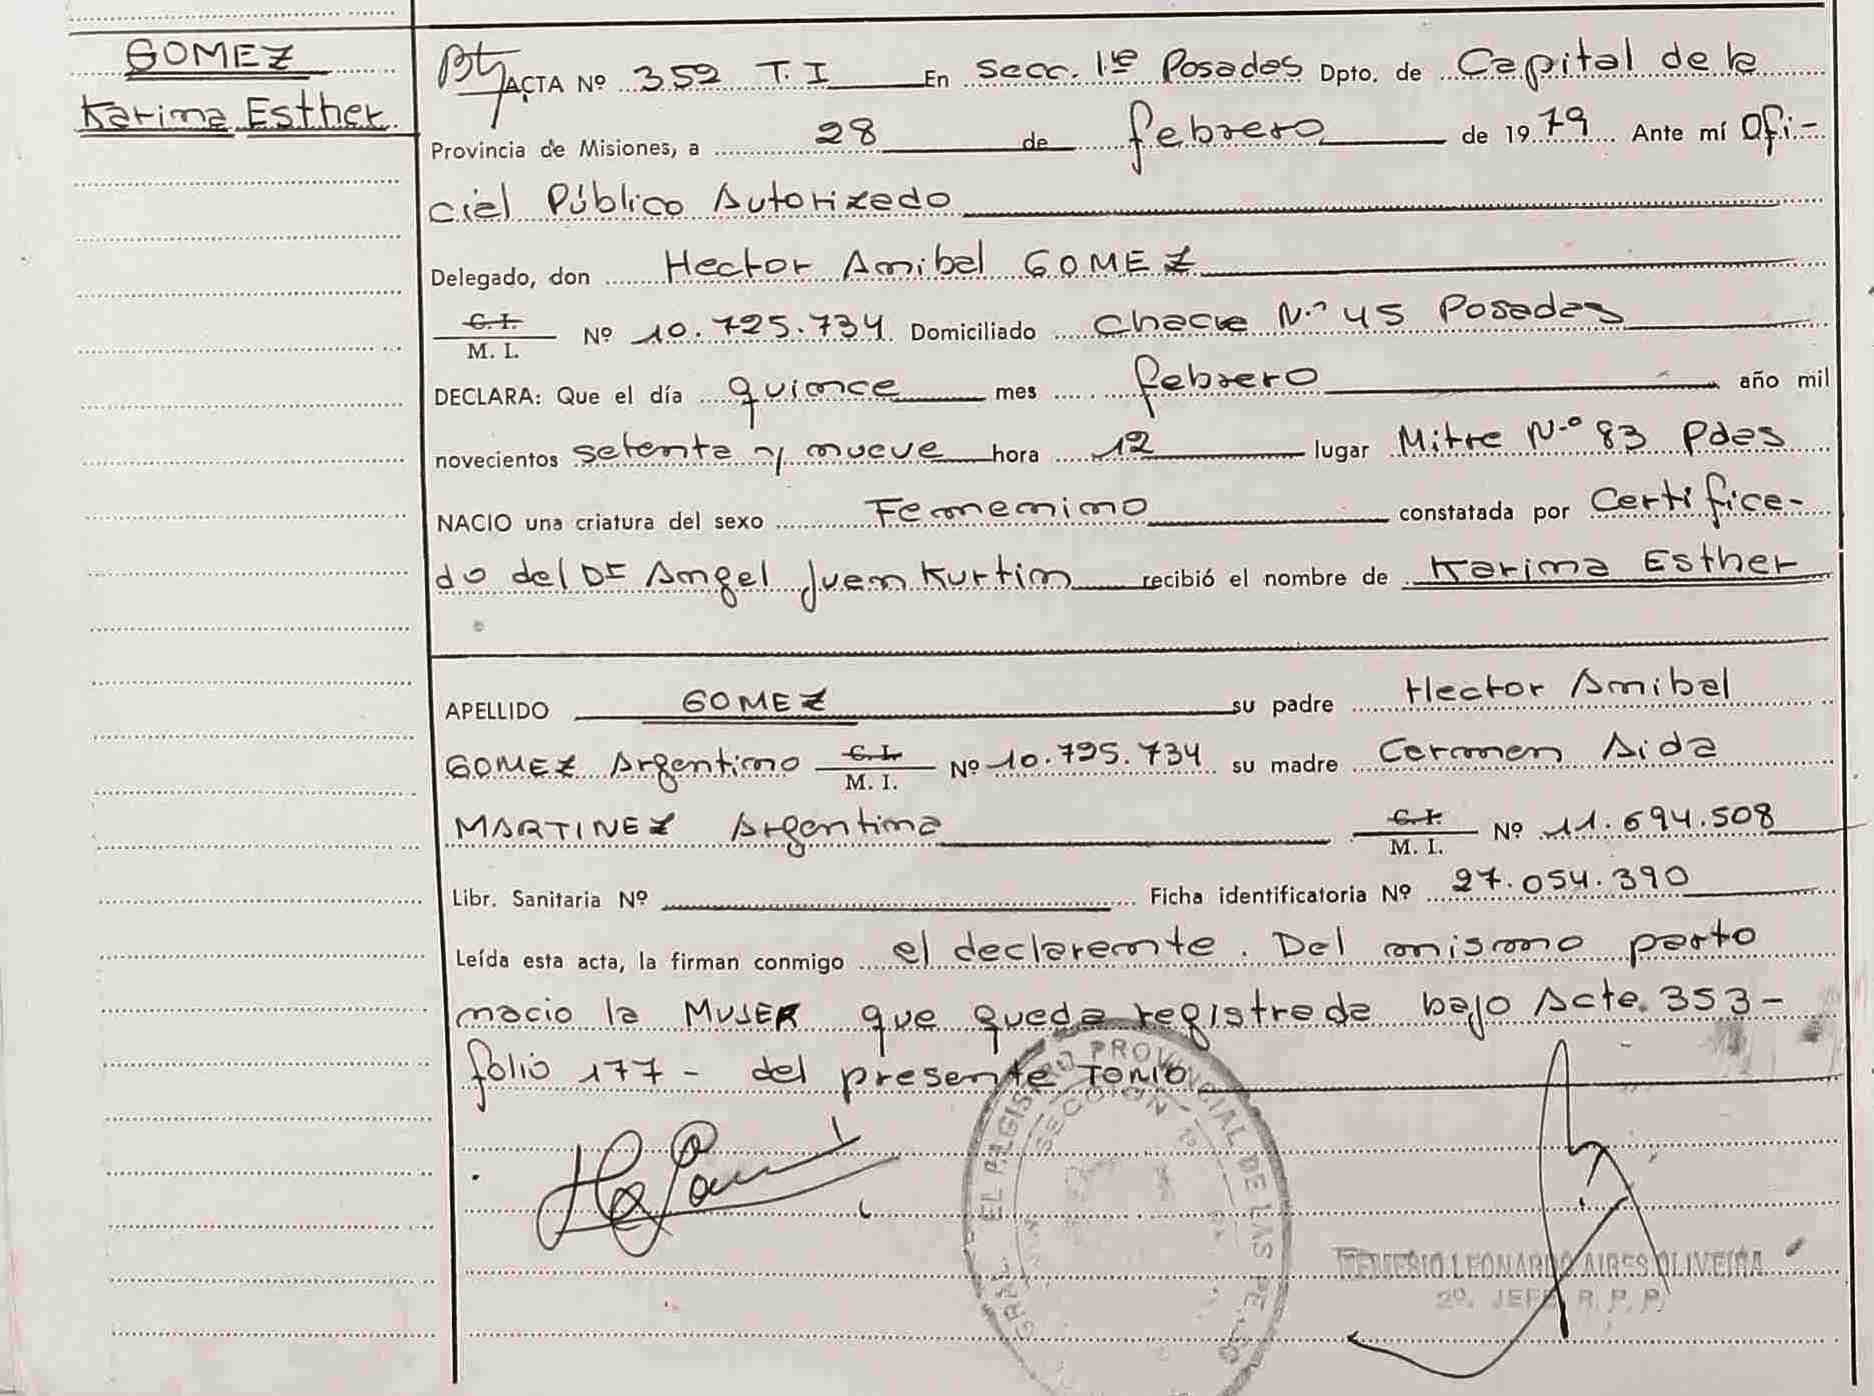 GOMEZ
Karina Esther
ACTA Nº 352 T. I En Secc. 1ª Posadas Dpto. de Capital de la
Provincia de Misiones, a 28 de febrero de 1979 Ante mí Ofi-
cial Público Autorizado
Delegado, don Hector Anibal GOMEZ
C. I. / M. I. Nº 10.725.734 Domiciliado Chacra N.º 45 Posadas
DECLARA: Que el día quince mes febrero año mil
novecientos setenta y nueve hora 12 lugar Mitre N.º 83 Pdas
NACIO una criatura del sexo Femenino constatada por Certifica-
do del Dr Angel Juan Kurtin recibió el nombre de Karina Esther
APELLIDO GOMEZ su padre Hector Anibal
GOMEZ Argentino C. I. / M. I. Nº 10.725.734 su madre Carmen Aida
MARTINEZ Argentina C. I. / M. I. Nº 11.694.508
Libr. Sanitaria Nº Ficha identificatoria Nº 27.054.390
Leída esta acta, la firman conmigo el declarante. Del mismo parto
nacio la MUJER que queda registrada bajo Acta. 353-
folio 177 - del presente TOMO
REGISTRO PROVINCIAL DE LAS
SECCION 1º
LEONARDO AIRES OLIVEIRA
2º. JEFE R. P. P.